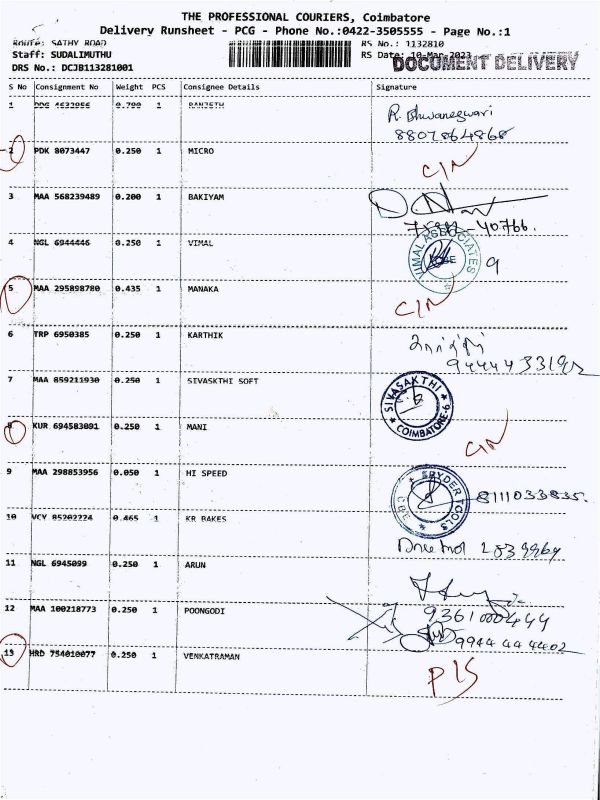 THE PROFESSIONAL COURIERS, Coimbatore
Delivery Runsheet - PCG - Phone No.:0422-3505555 - Page No.:1
Route: SATHY ROAD
RS No.: 1132810
Staff: SUDALIMUTHU
RS Date: 10-Mar-2023
DOCUMENT DELIVERY
DRS No.: DCJB113281001
S No Consignment No Weight PCS Consignee Details Signature
1 1 RANJETH
R. Bhuvaneswari
8807864868
2 PDK 8073447 0.250 1 MICRO
C/N
3 MAA 568239489 0.200 1 BAKIYAM
40766.
4 NGL 6944446 0.250 1 VIMAL
VIMAL ASSOCIATES
5 MAA 295898780 0.435 1 MANAKA
C/N
6 TRP 6950385 0.250 1 KARTHIK
7 MAA 859211930 0.250 1 SIVASKTHI SOFT
SIVASAKTHI
COIMBATORE-6
8 KUR 694583091 0.250 1 MANI
C/N
9 MAA 298853956 0.050 1 HI SPEED
SPYDER TOOLS
CBE
8111033835.
10 VCY 85202224 0.465 1 KR BAKES
2839969
11 NGL 6945099 0.250 1 ARUN
12 MAA 100218773 0.250 1 POONGODI
9361000449
9944444402
13 HRD 754010077 0.250 1 VENKATRAMAN